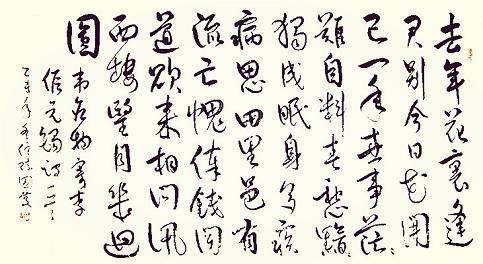 去年花裏逢
君別今日花開
已一年世事茫々
難自料春愁黯々
獨成眠身多疾
病思田里邑有
流亡愧俸錢聞
道欲來相問訊
西樓望月幾迴
圓
韋應物寄李
儋元錫詩一